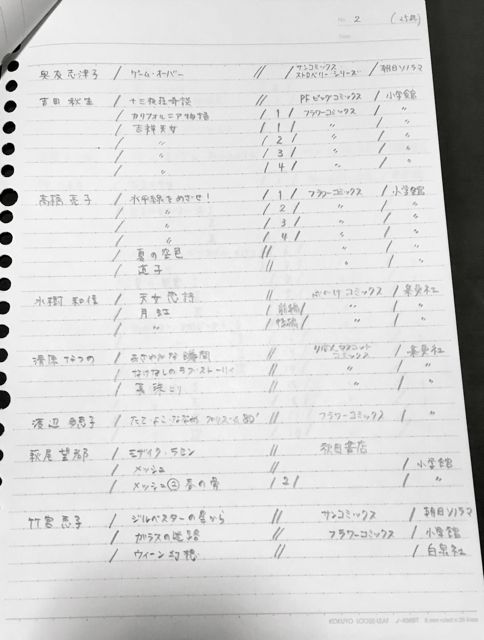 No. 2 (25冊)
Date
奥友志津子 / ゲーム・オーバー // サンコミックス ストロベリーシリーズ / 朝日ソノラマ
吉田 秋生 / 十三夜荘奇談 PFビッグコミックス / 小学館
/ カリフォルニア物語 / 1 / フラワーコミックス / 〃
/ 吉祥天女 / 1 / 〃 / 〃
/ 〃 / 2 / 〃 / 〃
/ 〃 / 3 / 〃 / 〃
/ 〃 / 4 / 〃 / 〃
高橋 亮子 / 水平線をめざせ! / 1 / フラワーコミックス / 小学館
/ 〃 / 2 / 〃 / 〃
/ 〃 / 3 / 〃 / 〃
/ 〃 / 4 / 〃 / 〃
/ 夏の空色 // 〃 / 〃
/ 道子 // 〃 / 〃
水樹 和佳 / 天女 // コミックス / 集英社
/ 月虹 / 前編 / 〃 / 〃
/ 〃 / 後編 / 〃 / 〃
清原 なつの / あざやかな瞬間 // りぼんマスコット コミックス / 集英社
/ なけなしのラブ・ストーリィ // 〃 / 〃
/ 真珠とり // 〃 / 〃
渡辺 多恵子 / たて よこ ななめ // フラワーコミックス / 〃
萩尾 望都 / モザイク・ラセン // 秋田書店
/ メッシュ // / 小学館
/ メッシュ② 春の骨 / 2 / / 〃
竹宮 恵子 / ジルベスターの星から // サンコミックス / 朝日ソノラマ
/ ガラスの迷路 // フラワーコミックス / 小学館
/ ウィーン幻想 // / 白泉社